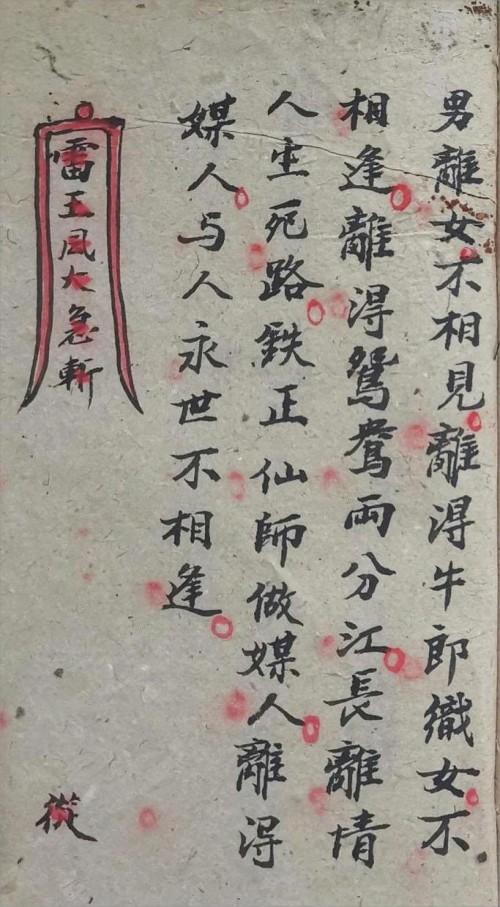 男離女不相見離得牛郎織女不
相逢離得鴛鴦兩分江長離情
人坐死路鉄正仙師做媒人離得
媒人与人永世不相逢
雷王風火急斬